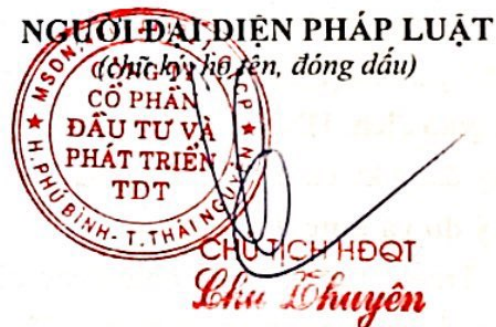 NGƯỜI ĐẠI DIỆN PHÁP LUẬT
(chữ ký, họ tên, đóng dấu)
CÔNG TY
CỔ PHẦN
ĐẦU TƯ VÀ
PHÁT TRIỂN
TDT
H. PHÚ BÌNH - T. THÁI NGUYÊN
CHỦ TỊCH HĐQT
Chu Thuyên